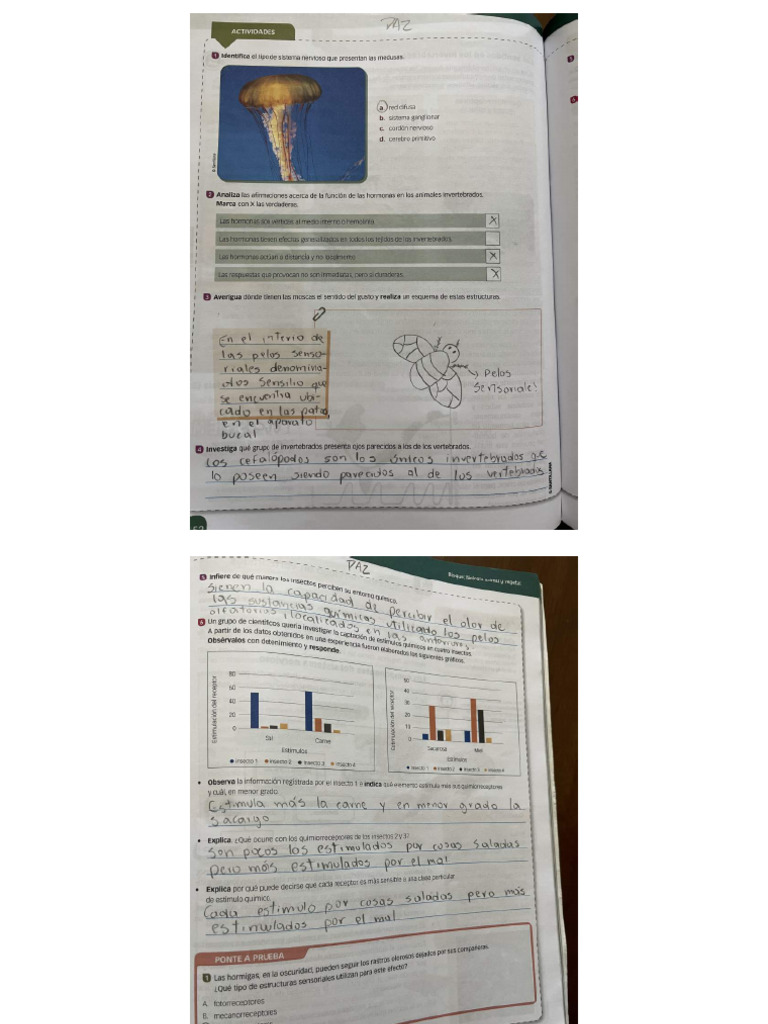 PAZ
ACTIVIDADES
1 Identifica el tipo de sistema nervioso que presentan las medusas.
a. red difusa
b. sistema ganglionar
c. cordón nervioso
d. cerebro primitivo
2 Analiza las afirmaciones acerca de la función de las hormonas en los animales invertebrados.
Marca con X las verdaderas.
Las hormonas son vertidas al medio interno o hemolinfa. X
Las hormonas tienen efectos generalizados en todos los tejidos de los invertebrados.
Las hormonas actúan a distancia y no localmente. X
Las respuestas que provocan no son inmediatas, pero sí duraderas. X
3 Averigua dónde tienen las moscas el sentido del gusto y realiza un esquema de estas estructuras.
En el interio de
las pelos senso-
riales denomina-
dos Sensilio que
se encuentra ubi-
cado en las patas
en el aparato
bucal
Pelos
Sensoriale!
4 Investiga qué grupo de invertebrados presenta ojos parecidos a los de los vertebrados.
Los cefalópodos son los únicos invertebrados que
lo poseen siendo parecidos al de los vertebrados
52
PAZ
Bloque: Biología animal y vegetal
5 Infiere de qué manera los insectos perciben su entorno químico.
Sienen la capacidad de percibir el olor de
las sustancias químicas utilizado los pelos
olfatorios localizados en las anteriores.
6 Un grupo de científicos quería investigar la captación de estímulos químicos en cuatro insectos.
A partir de los datos obtenidos en una experiencia fueron elaborados los siguientes gráficos.
Obsérvalos con detenimiento y responde.
Estimulación del receptor
80
60
40
20
0
Sal
Carne
Estímulos
insecto 1 insecto 2 insecto 3 insecto 4
Estimulación del receptor
50
40
30
20
10
0
Sacarosa
Miel
Estímulos
insecto 1 insecto 2 insecto 3 insecto 4
• Observa la información registrada por el insecto 1 e indica qué elemento estimula más sus quimiorreceptores
y cuál, en menor grado.
Estimula más la carne y en menor grado la
sacargo
• Explica: ¿Qué ocurre con los quimiorreceptores de los insectos 2 y 3?
Son pocos los estimulados por cosas saladas
pero más estimulados por el mal
• Explica por qué puede decirse que cada receptor es más sensible a una clase particular
de estímulo químico.
Cada estimulo por cosas saladas pero más
estimulados por el mal
PONTE A PRUEBA
1 Las hormigas, en la oscuridad, pueden seguir los rastros olorosos dejados por sus compañeras.
¿Qué tipo de estructuras sensoriales utilizan para este efecto?
A. fotorreceptores
B. mecanorreceptores